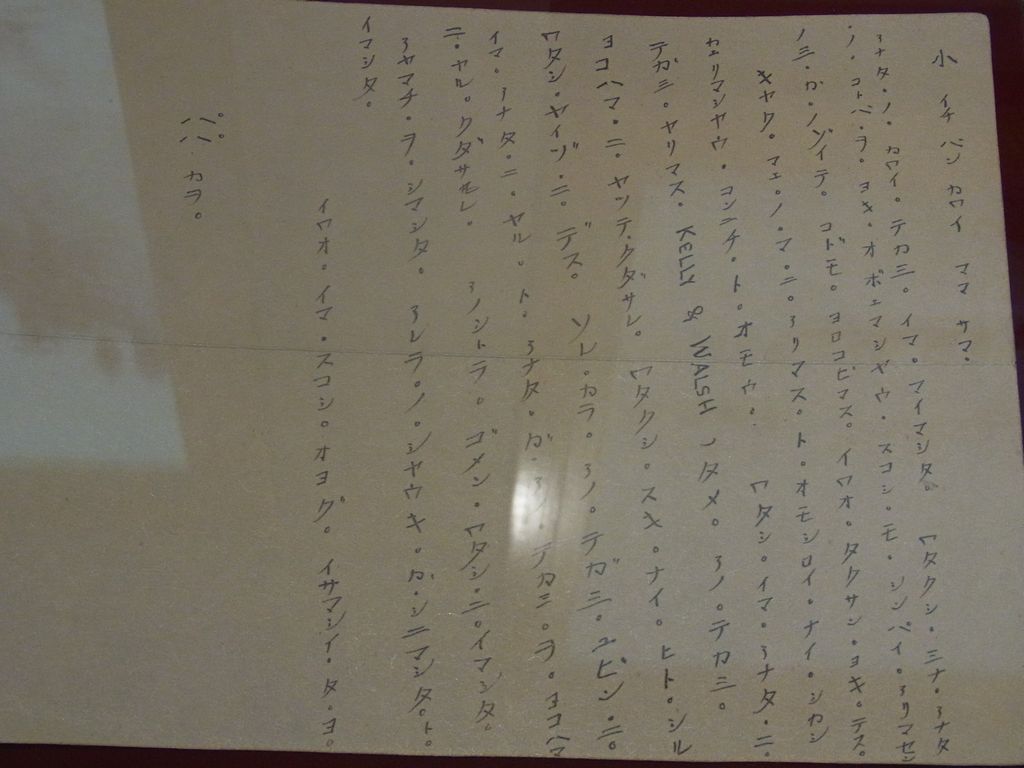 小 イチ バン カワイ ママ サマ.
アナタ・ノ・カワイ・テカミ。イマ・マイマシタ。ワタクシ・ミナ・アナタ
・ノ・コトバ・ヲ・ヨキ・オボエマシヤウ・スコシ・モ・シンパイ・アリマセン
ノミ・カ・ノゾイテ。コドモ。ヨロコビマス。イワオ・タクサン・ヨキ・デス。
キヤク・マエ・ノ・マ・ニ・アリマス・ト・オモシロイ・ナイ・シカシ
カエリマシヤウ・コンニチ・ト・オモウ. ワタシ・イマ・アナタ・ニ・
テガミ・ヤリマス. KELLY & WALSH ノタメ・アノ・テカミ。
ヨコハマ・ニ・ヤッテ・クダサレ。ワタクシ・スキ・ナイ・ヒト・シル
ワタシ・ヤイヅ・ニ・デス。ソレ・カラ・アノ・テガミ・ユビン・ニ。
イマ・アナタ・ニ・ヤル.ト.アナタ・ガ・アノ・テカミ・ヲ・ヨコハマ
ニ・ヤル・クダサルレ。アノシトラ。ゴメン・ワタシ・ニ・イマシタ。
アヤマチ・ヲ・シマシタ。アレラ・ノ・シヤウキ・ガ・シニマシタ。ト。
イマシタ。
イワオ・イマ・スコシ・オヨグ。イサマシイ・タ・ヨ。
パパ カラ。